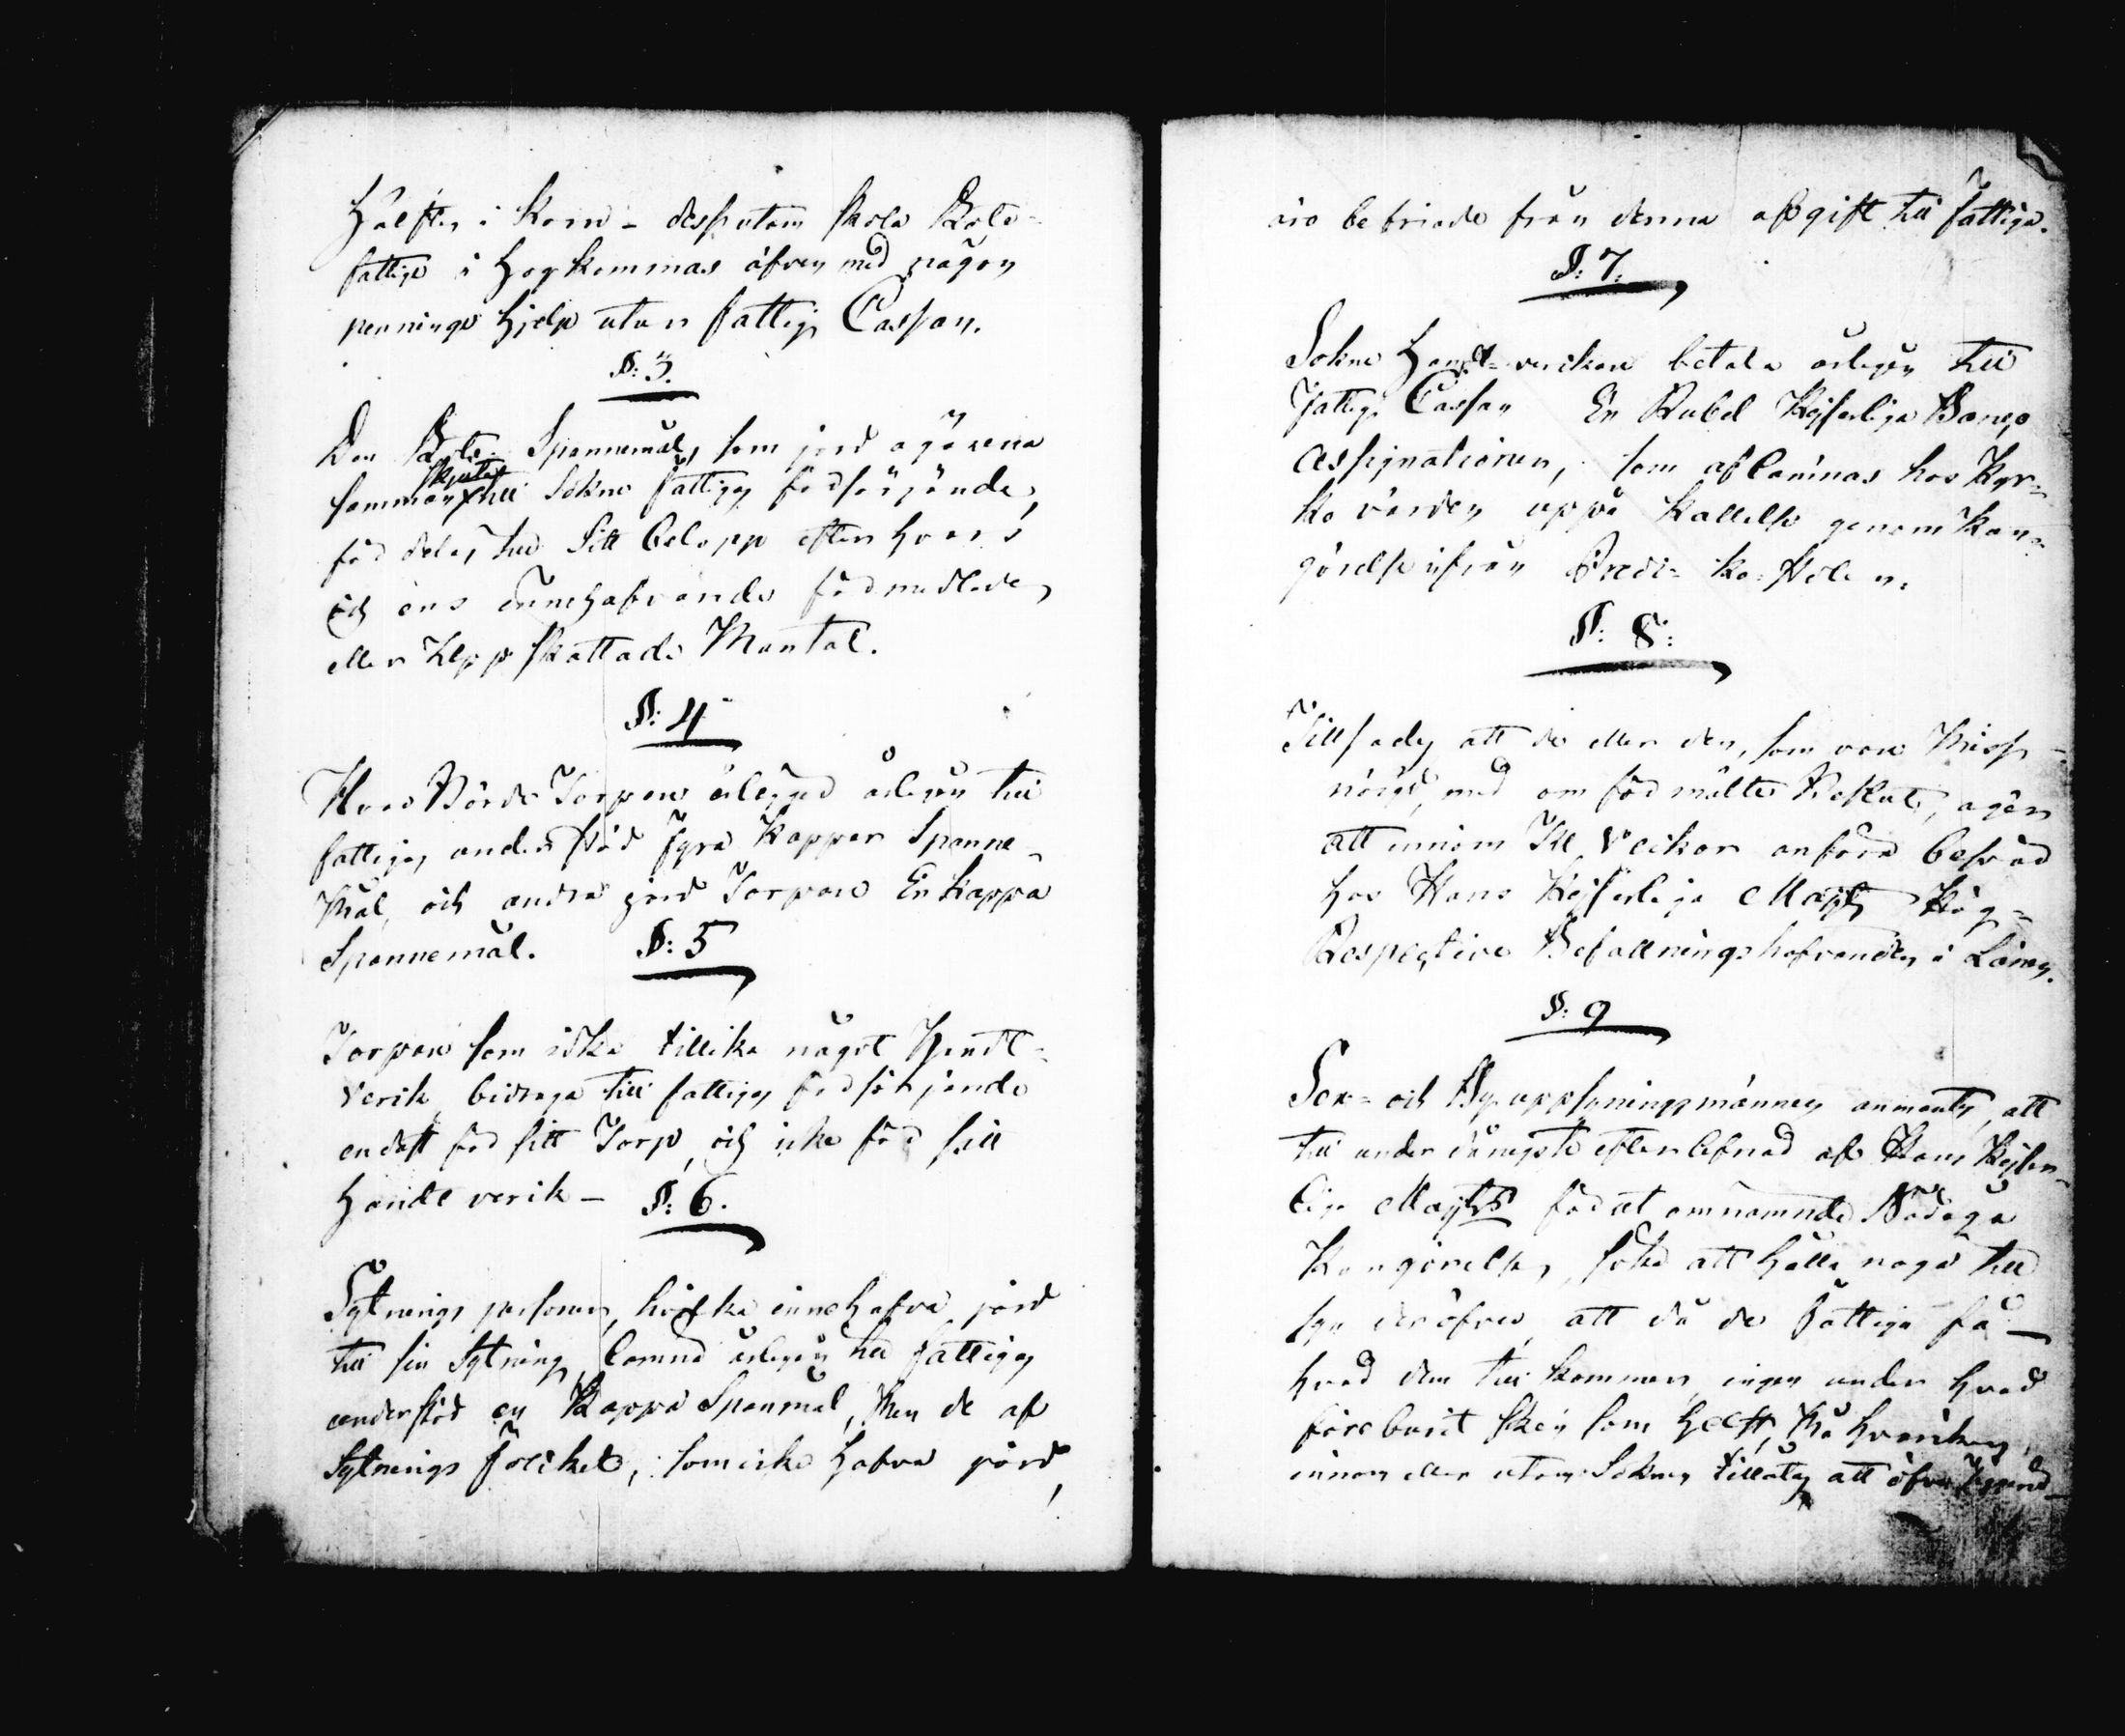 hälften i Korn – dessutom skola Rote-
fattige i hogkommas äfven med någon
pennings hjelp utur fattig Cassan.
§: 3.
Den Rote Spannemål, som jord ägarena
skjuta
samman till Sokne fattigas försörjande,
fördelas till sitt belopp efter hvars
och ens innehafvande förmedlade,
eller Uppskattade Mantal.
§: 4
Hvar Bördes Torpare ålägges årligen till
fattigas understöd fyra Kappar Spanne-
mål, och andre jord Torpare En kappa
Spannemål. §: 5
Torpare som idka tillika något Handt-
verk bidraga till fattigas försörjande
endast för sitt Torp, och icke för sitt
handtverk – §: 6.
Sytnings personer, hvilka innehafva jord
till sin Sytning, lämna årligen till fattigas
understöd en Kappa Spanmål, men de af
Sytnings folcket, som icke hafva jord,
äro befriade från denna afgift till fattiga.
§: 7.
Sokne Handt-verkare betala årligen till
Fattig Cassan En Rubel Kejserliga Banco
Assignationer, som aflämnas hos Kyr-
ko värden uppå kallelse genom Kun-
görelse ifrån Predi-ko-stolen.
§: 8:
Tillsades att de eller den, som vore Miss-
nögd med om förmälte Beslut, äger
att innom XII Veckor anföra besvär
hos Hans Kejserliga Majts Hög-
Respective Befallningshafvande i Länen.
§: 9
Sex- och By uppsyningsmännen anmantes, att
till underdånigste efterlefnad af Hans Kejser-
liga Majts förut omnämnde Nådiga
Kungörelse, söka att hålla noga till
syn deröfver, att då de fattiga få
hvad dem till kommer, ingen under hvad
föreburit sken som helst, må hvarken
innom eller utom Soknen tillåtas att öfver